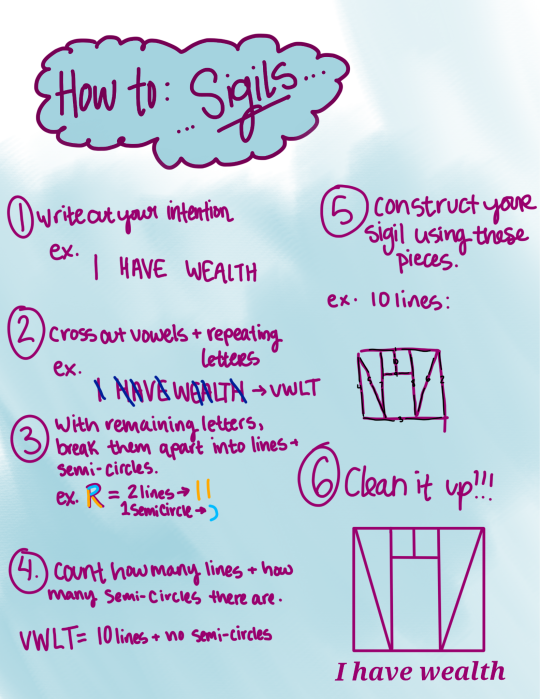 How to: Sigils...
...
① Write out your intention
ex.
I HAVE WEALTH
② Cross out vowels + repeating
letters
ex.
I HAVE WEALTH → VWLT
③ With remaining letters,
break them apart into lines +
semi-circles.
ex. R = 2 lines →
1 semi circle →
④. Count how many lines + how
many semi-circles there are.
VWLT = 10 lines + no semi-circles
⑤ Construct your
sigil using these
pieces.
ex. 10 lines:
⑥ Clean it up!!!
I have wealth